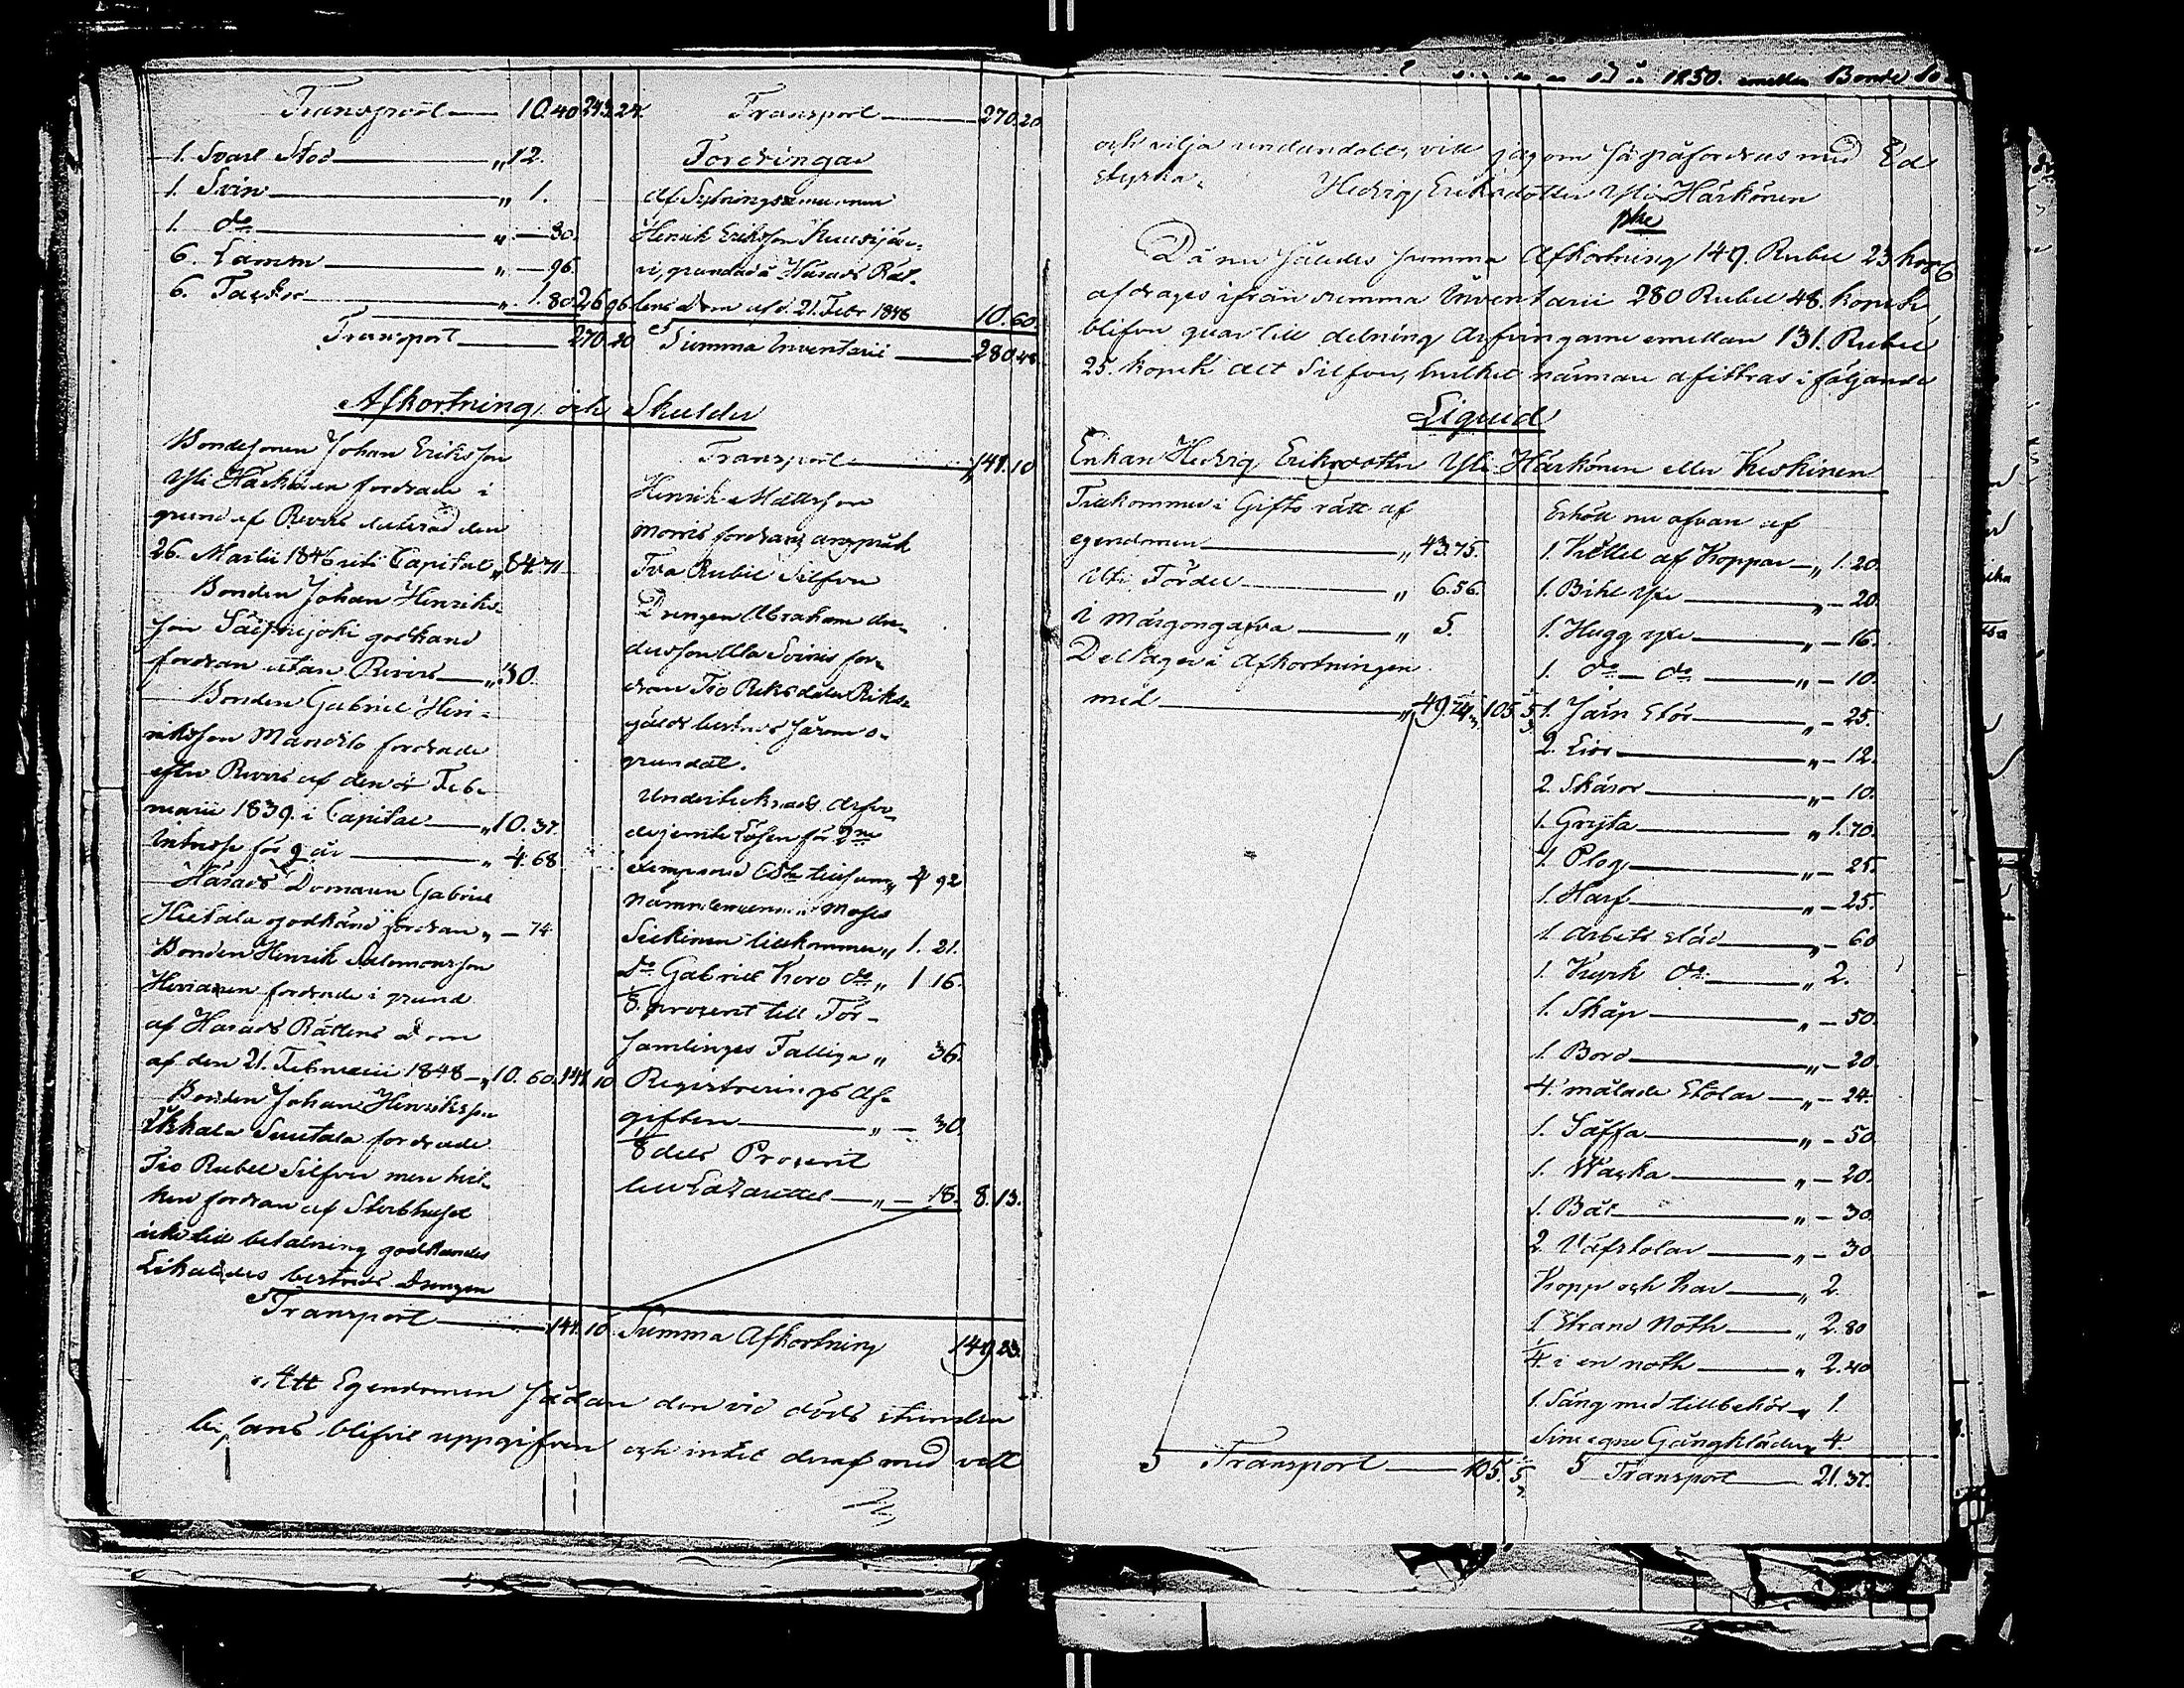 Transport — 10.40 243.24.
1. Svart Sto — „ 12.
1. Svin — „ 1.
1. do — „ — 30.
6. Lamm — „ — 96.
6. Tackor — „ 1.80. 26 96
Transport — 270.20
Transport — 270.20
Fordringar
af Sytningsmannen
Henrik Eriksson Kuusijär-
vi, grundad å Härads Rät-
tens Dom af d. 21. Febr 1848 10.60.
Summa Inventarii — 280.48
Afkortning och Skulder
Bondesonen Johan Eriksson
Yli Härkönen fordrade i
grund af Revers daterad den
26. Martii 1846 uti Capital „ 84.71
Bonden Johan Henriks-
son godkand
fordran utan Revers — „ 30.
Bonden Gabriel Hen-
riksson Mandilo fordrade
efter Revers af den Feb-
ruarii 1839. i Capital — „ 10.37.
Intresse för 9 år — „ 4.68
Härads Domaren Gabriel
Hietala godkänd fordran „ — 74
Bonden Henrik Salomonsson
fordrade i grund
af Härads Rättens Dom
af den 21. Februarii 1848 — „ 10.60. 141.10
Bonden Johan Henriksson
Suutala fordrade
Tio Rubel Silfver men hvil-
ken fordran af Sterbhuset
icke till betalning godkändes
Likaledes bestreds Drengen
Transport — 141.10
Transport — „ 141.10
Henrik Mattsson
Morris fordrans anspråk
Två Rubel Silfver
Drengen Abraham An-
dersson Ala for-
dran Tio Riksdaler Riks-
gälds bestreds såsom o-
grundat.
Undertecknads Arfvo-
de jemte Lösen för 2ne
exemplar tillsam „ 4 92
Nämndemannen Moses
Siekinen tillkommer „ 1. 21.
do Gabriel Koro do „ 1 16.
1/8. prosent till För-
samlingens Fattiga „ 36.
Registrerings Af-
giften — „ — 30.
1/8 dels Prosent
till Lazarettet — „ — 18. 8.13.
Summa Afkortning 149.23.
Att Egendomen sådan den vid döds stunden
befans blifvit uppgifven och intet deraf med vett
1850. emellan Bonde
och vilja undandolt, vill jag om så påfordras med Ed
styrka. Hedvig Eriksdotter Yli Härkönen
Då nu således summa Afkortning 149. Rubel 23 kop
afdrages ifrån summa Inventarii 280 Rubel 48. kopek
blifver quar till delning Arfvingarne emellan 131. Rubel
25. kopek allt Silfver, hvilket närmare afittras i följande
Liquid
Enkan Hedvig Eriksdotter Yli Härkönen eller Keskinen
Tillkommer i Gifto rätt af
egendomen — „ 43.75.
Uti Fördel — „ 6.56.
i Morgongåfva — „ 5.
Deltager i Afkortningen
med — „ 49.74 105. 5
5 Transport — 105. 5
Erhöll nu ofvan af
1. Kittel af Koppar — „ 1.20.
1. Bihl Yxe — „ — 20.
1. Hugg yxe — „ — 16.
1. do — do — „ — 10.
1. Järn Stör — „ — 25.
2. Liar — „ — 12.
2. Skäror — „ — 10.
1. Gryta — „ 1.70.
1. Plog — „ — 25.
1. Harf — „ — 25.
1. Arbets släd — „ — 60
1. Kyrk do — „ 2.
1. Skåp — „ — 50.
1. Bord — „ — 20
4. målade Stolar — „ — 24.
1. Säffa — „ — 50
1. Wagka — „ — 20.
1. Båt — „ — 30.
2. Väfstolar — „ — 30
Kopp och Kar — „ 2
1. Strand Noth — „ 2.80
1/4 i en noth — „ 2.40
1. Säng med tillbehör „ 1.
Sine egne Gångkläder „ 4.
5 Transport — 21.37.